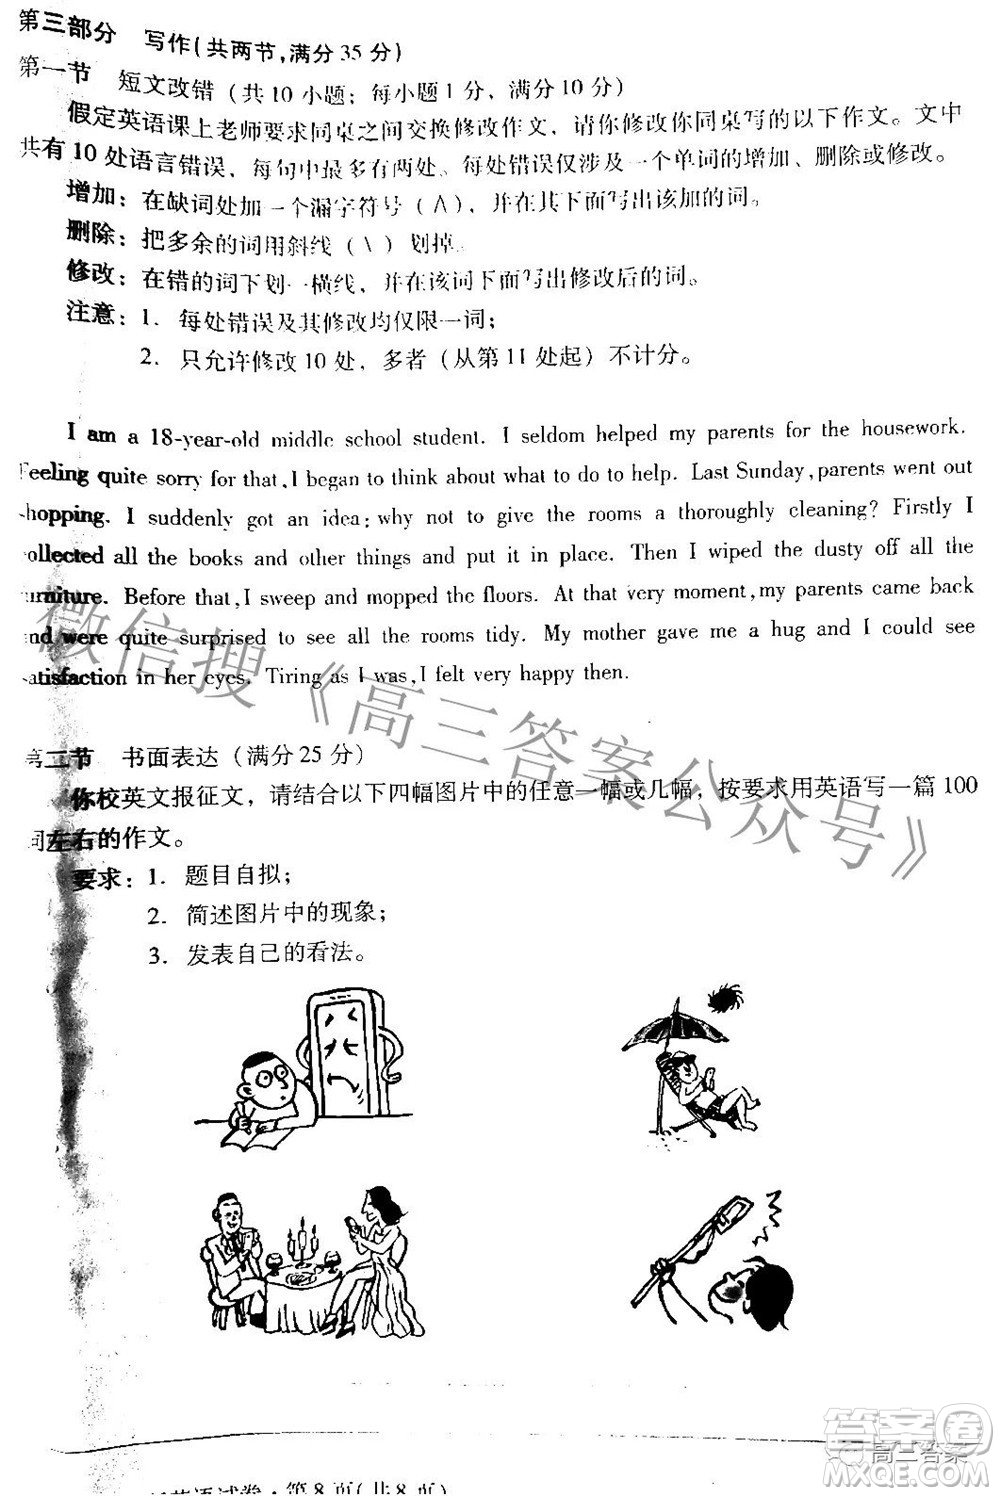 第三部分 写作(共两节,满分35分)
第一节 短文改错（共10小题；每小题1分，满分10分）
假定英语课上老师要求同桌之间交换修改作文，请你修改你同桌写的以下作文。文中
共有10处语言错误，每句中最多有两处。每处错误仅涉及一个单词的增加、删除或修改。
增加：在缺词处加一个漏字符号（∧），并在其下面写出该加的词。
删除：把多余的词用斜线（\）划掉。
修改：在错的词下划一横线，并在该词下面写出修改后的词。
注意：1. 每处错误及其修改均仅限一词；
2. 只允许修改10处，多者（从第11处起）不计分。
I am a 18-year-old middle school student. I seldom helped my parents for the housework.
Feeling quite sorry for that, I began to think about what to do to help. Last Sunday, parents went out
shopping. I suddenly got an idea: why not to give the rooms a thoroughly cleaning? Firstly I
collected all the books and other things and put it in place. Then I wiped the dusty off all the
furniture. Before that, I sweep and mopped the floors. At that very moment, my parents came back
and were quite surprised to see all the rooms tidy. My mother gave me a hug and I could see
satisfaction in her eyes. Tiring as I was, I felt very happy then.
第二节 书面表达（满分25分）
你校英文报征文，请结合以下四幅图片中的任意一幅或几幅，按要求用英语写一篇100
词左右的作文。
要求：1. 题目自拟；
2. 简述图片中的现象；
3. 发表自己的看法。
微信搜《高三答案公众号》
答案圈
高三答案
MXQE.COM
英语试卷·第8页(共8页)